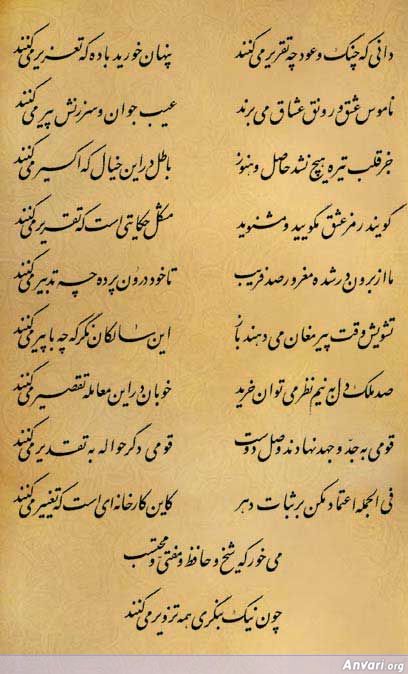 دانی که چنگ و عود چه تقریر می کنند پنهان خورید باده که تعزیر می کنند
ناموس عشق و رونق عشاق می برند عیب جوان و سرزنش پیر می کنند
جز قلب تیره هیچ نشد حاصل و هنوز باطل در این خیال که اکسیر می کنند
گویند رمز عشق مگویید و مشنوید مشکل حکایتی است که تقریر می کنند
ما از برون در شده مغرور صد فریب تا خود درون پرده چه تدبیر می کنند
تشویش وقت پیر مغان می دهند باز این سالکان نگر که چه با پیر می کنند
صد ملک دل به نیم نظر می توان خرید خوبان در این معامله تقصیر می کنند
قومی به جدّ و جهد نهادند وصل دوست قومی دگر حواله به تقدیر می کنند
فی الجمله اعتماد مکن بر ثبات دهر کاین کارخانه ای است که تغییر می کنند
می خور که شیخ و حافظ و مفتی و محتسب
چون نیک بنگری همه تزویر می کنند
Anvari.org